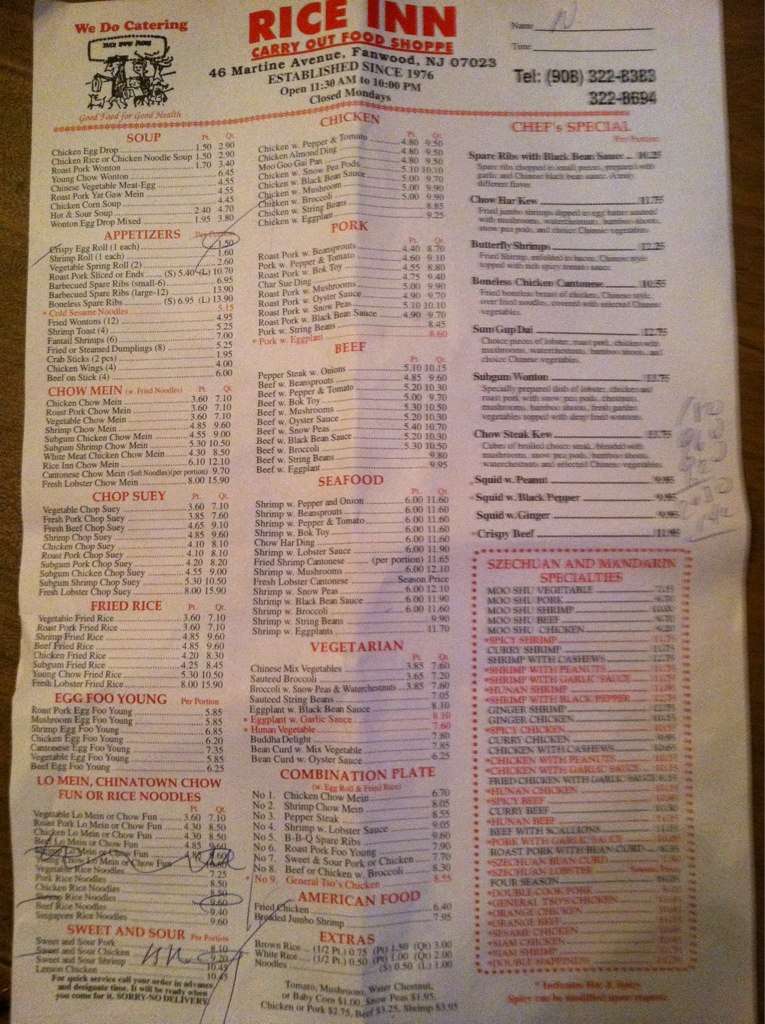 We Do Catering
Good Food for Good Health
RICE INN
CARRY OUT FOOD SHOPPE
46 Martine Avenue, Fanwood, NJ 07023
ESTABLISHED SINCE 1976
Open 11:30 AM to 10:00 PM
Closed Mondays
Name
Time
Tel: (908) 322-8383
322-8694
SOUP Pt. Qt.
Chicken Egg Drop 1.50 2.90
Chicken Rice or Chicken Noodle Soup 1.50 2.90
Roast Pork Wonton 1.70 3.40
Young Chow Wonton 6.45
Chinese Vegetable Meat-Egg 4.55
Roast Pork Yat Gaw Mein 4.55
Chicken Corn Soup 4.45
Hot & Sour Soup 2.40 4.70
Wonton Egg Drop Mixed 1.95 3.80
APPETIZERS Per Portion
Crispy Egg Roll (1 each) 1.50
Shrimp Roll (1 each) 1.60
Vegetable Spring Roll (2) 2.60
Roast Pork Sliced or Ends (S) 5.40 (L) 10.70
Barbecued Spare Ribs (small-6) 6.95
Barbecued Spare Ribs (large-12) 13.90
Boneless Spare Ribs (S) 6.95 (L) 13.90
* Cold Sesame Noodles 5.15
Fried Wontons (12) 4.95
Shrimp Toast (4) 5.25
Fantail Shrimps (6) 7.00
Fried or Steamed Dumplings (8) 5.25
Crab Sticks (2 pcs) 1.95
Chicken Wings (4) 4.00
Beef on Stick (4) 6.00
CHOW MEIN (w. Fried Noodles) Pt. Qt.
Chicken Chow Mein 3.60 7.10
Roast Pork Chow Mein 3.60 7.10
Vegetable Chow Mein 3.60 7.10
Shrimp Chow Mein 4.85 9.60
Subgum Chicken Chow Mein 4.55 9.00
Subgum Shrimp Chow Mein 5.30 10.50
White Meat Chicken Chow Mein 4.30 8.50
Rice Inn Chow Mein 6.10 12.10
Cantonese Chow Mein (Soft Noodles) (per portion) 9.70
Fresh Lobster Chow Mein 8.00 15.90
CHOP SUEY Pt. Qt.
Vegetable Chop Suey 3.60 7.10
Fresh Pork Chop Suey 3.85 7.60
Fresh Beef Chop Suey 4.65 9.10
Shrimp Chop Suey 4.85 9.60
Chicken Chop Suey 4.10 8.10
Roast Pork Chop Suey 4.10 8.10
Subgum Pork Chop Suey 4.20 8.20
Subgum Chicken Chop Suey 4.55 9.00
Subgum Shrimp Chop Suey 5.30 10.50
Fresh Lobster Chop Suey 8.00 15.90
FRIED RICE Pt. Qt.
Vegetable Fried Rice 3.60 7.10
Roast Pork Fried Rice 3.60 7.10
Shrimp Fried Rice 4.85 9.60
Beef Fried Rice 4.85 9.60
Chicken Fried Rice 4.20 8.30
Subgum Fried Rice 4.25 8.45
Young Chow Fried Rice 5.30 10.50
Fresh Lobster Fried Rice 8.00 15.90
EGG FOO YOUNG Per Portion
Roast Pork Egg Foo Young 5.85
Mushroom Egg Foo Young 5.85
Shrimp Egg Foo Young 6.85
Chicken Egg Foo Young 6.20
Cantonese Egg Foo Young 7.35
Vegetable Egg Foo Young 5.85
Beef Egg Foo Young 6.25
LO MEIN, CHINATOWN CHOW
FUN OR RICE NOODLES
Pt. Qt.
Vegetable Lo Mein or Chow Fun 3.60 7.10
Roast Pork Lo Mein or Chow Fun 4.30 8.50
Chicken Lo Mein or Chow Fun 4.30 8.50
Beef Lo Mein or Chow Fun 4.85 9.60
Lo Mein or Chow Fun 4.85 9.60
Chow Lo Mein or Chow Fun
Vegetable Rice Noodles 7.25
Pork Rice Noodles 8.50
Chicken Rice Noodles 8.50
Shrimp Rice Noodles 9.60
Beef Rice Noodles 9.40
Singapore Rice Noodles 9.60
SWEET AND SOUR Per Portion
Sweet and Sour Pork 8.10
Sweet and Sour Chicken 9.20
Sweet and Sour Shrimp 10.45
Lemon Chicken 10.45
For quick service call your order in advance
and designate time. It will be ready when
you come for it. SORRY-NO DELIVERY
CHICKEN
Pt. Qt.
Chicken w. Pepper & Tomato 4.80 9.50
Chicken Almond Ding 4.80 9.50
Moo Goo Gai Pan 4.80 9.50
Chicken w. Snow Pea Pods 5.10 10.10
Chicken w. Black Bean Sauce 5.00 9.70
Chicken w. Mushroom 5.00 9.90
Chicken w. Broccoli 5.00 9.90
Chicken w. String Beans 8.85
Chicken w. Eggplant 9.25
PORK
Pt. Qt.
Roast Pork w. Beansprouts 4.40 8.70
Pork w. Pepper & Tomato 4.60 9.10
Roast Pork w. Bok Toy 4.55 8.80
Char Sue Ding 4.75 9.40
Roast Pork w. Mushrooms 5.00 9.90
Roast Pork w. Oyster Sauce 4.90 9.70
Roast Pork w. Snow Peas 5.10 10.10
Roast Pork w. Black Bean Sauce 4.90 9.70
Pork w. String Beans 8.45
* Pork w. Eggplant 8.60
BEEF
Pt. Qt.
Pepper Steak w. Onions 5.10 10.15
Beef w. Beansprouts 4.85 9.60
Beef w. Pepper & Tomato 5.20 10.30
Beef w. Bok Toy 5.00 9.70
Beef w. Mushrooms 5.30 10.50
Beef w. Oyster Sauce 5.20 10.30
Beef w. Snow Peas 5.40 10.70
Beef w. Black Bean Sauce 5.20 10.30
Beef w. Broccoli 5.30 10.50
Beef w. String Beans 9.80
Beef w. Eggplant 9.95
SEAFOOD
Pt. Qt.
Shrimp w. Pepper and Onion 6.00 11.60
Shrimp w. Beansprouts 6.00 11.60
Shrimp w. Pepper & Tomato 6.00 11.60
Shrimp w. Bok Toy 6.00 11.60
Chow Har Ding 6.00 11.60
Shrimp w. Lobster Sauce 6.00 11.90
Fried Shrimp Cantonese (per portion) 11.65
Shrimp w. Mushrooms 6.00 12.10
Fresh Lobster Cantonese Season Price
Shrimp w. Snow Peas 6.00 12.10
Shrimp w. Black Bean Sauce 6.00 11.90
Shrimp w. Broccoli 6.00 11.60
Shrimp w. String Beans 9.90
Shrimp w. Eggplants 11.70
VEGETARIAN
Pt. Qt.
Chinese Mix Vegetables 3.85 7.60
Sauteed Broccoli 3.65 7.20
Broccoli w. Snow Peas & Waterchestnuts 3.85 7.60
Sauteed String Beans 7.05
Eggplant w. Black Bean Sauce 8.10
* Eggplant w. Garlic Sauce 8.10
* Hunan Vegetable 7.60
Buddha Delight 7.80
Bean Curd w. Mix Vegetable 7.85
Bean Curd w. Oyster Sauce 6.25
COMBINATION PLATE
(w. Egg Roll & Fried Rice)
No 1. Chicken Chow Mein 6.70
No 2. Shrimp Chow Mein 8.05
No 3. Pepper Steak 8.55
No 4. Shrimp w. Lobster Sauce 9.05
No 5. B-B-Q Spare Ribs 9.60
No 6. Roast Pork Foo Young 7.90
No 7. Sweet & Sour Pork or Chicken 7.70
No 8. Beef or Chicken w. Broccoli 8.30
* No 9. General Tso's Chicken 8.55
AMERICAN FOOD
Fried Chicken 6.40
Breaded Jumbo Shrimp 7.95
EXTRAS
Brown Rice (1/2 Pt.) 0.75 (Pt) 1.50 (Qt) 3.00
White Rice (1/2 Pt.) 0.50 (Pt) 1.00 (Qt) 2.00
Noodles (S) 0.50 (L) 1.00
Tomato, Mushrooms, Water Chestnut,
or Baby Corn $1.00, Snow Peas $1.95,
Chicken or Pork $2.75, Beef $3.25, Shrimp $3.95
CHEF's SPECIAL
Per Portion
Spare Ribs with Black Bean Sauce 10.25
Spare ribs chopped in small pieces, prepared with
garlic and Chinese black bean sauce.
different flavor.
Chow Har Kew 11.75
Fried jumbo shrimps dipped in egg batter sauteed
with mushrooms, waterchestnuts, bamboo shoots,
snow pea pods, and choice Chinese vegetables.
Butterfly Shrimps 12.25
Fried Shrimp, enfolded in bacon, Chinese style
topped with rich spicy tomato sauce.
Boneless Chicken Cantonese 10.55
Fried boneless breast of chicken, Chinese style,
over fried noodles, covered with selected Chinese
vegetables.
Sum Gup Dai 12.75
Choice pieces of lobster, roast pork, chicken with
mushrooms, waterchestnuts, bamboo shoots, and
choice Chinese vegetables.
Subgum Wonton 13.75
Specially prepared dish of lobster, chicken and
roast pork with snow pea pods, chestnuts,
mushrooms, bamboo shoots, fresh garden
vegetables topped with deep fried wontons.
Chow Steak Kew 13.75
Cubes of broiled choice steak, blended with
mushrooms, snow pea pods, bamboo shoots,
waterchestnuts and selected Chinese vegetables.
Squid w. Peanut 9.95
* Squid w. Black Pepper 9.95
Squid w. Ginger 9.95
* Crispy Beef 11.95
SZECHUAN AND MANDARIN
SPECIALTIES
MOO SHU VEGETABLE 7.55
MOO SHU PORK 9.70
MOO SHU SHRIMP 10.00
MOO SHU BEEF 9.70
MOO SHU CHICKEN 9.20
*SPICY SHRIMP
CURRY SHRIMP
SHRIMP WITH CASHEWS
*SHRIMP WITH PEANUTS
*SHRIMP WITH GARLIC SAUCE
*HUNAN SHRIMP
*SHRIMP WITH BLACK PEPPER
GINGER SHRIMP
GINGER CHICKEN
*SPICY CHICKEN
CURRY CHICKEN
CHICKEN WITH CASHEWS
*CHICKEN WITH PEANUTS
*CHICKEN WITH GARLIC SAUCE
FRIED CHICKEN WITH GARLIC SAUCE
*HUNAN CHICKEN
*SPICY BEEF
CURRY BEEF
*HUNAN BEEF
BEEF WITH SCALLIONS
*PORK WITH GARLIC SAUCE
ROAST PORK WITH BEAN CURD
*SZECHUAN BEAN CURD
*SZECHUAN LOBSTER
FOUR SEASON
*DOUBLE COOK PORK
*GENERAL TSO'S CHICKEN
*ORANGE CHICKEN
*ORANGE BEEF
*SESAME CHICKEN
*SIAM CHICKEN
*SIAM SHRIMP
*DOUBLE HAPPINESS
* Indicates Hot & Spicy
Spicy can be modified upon request.